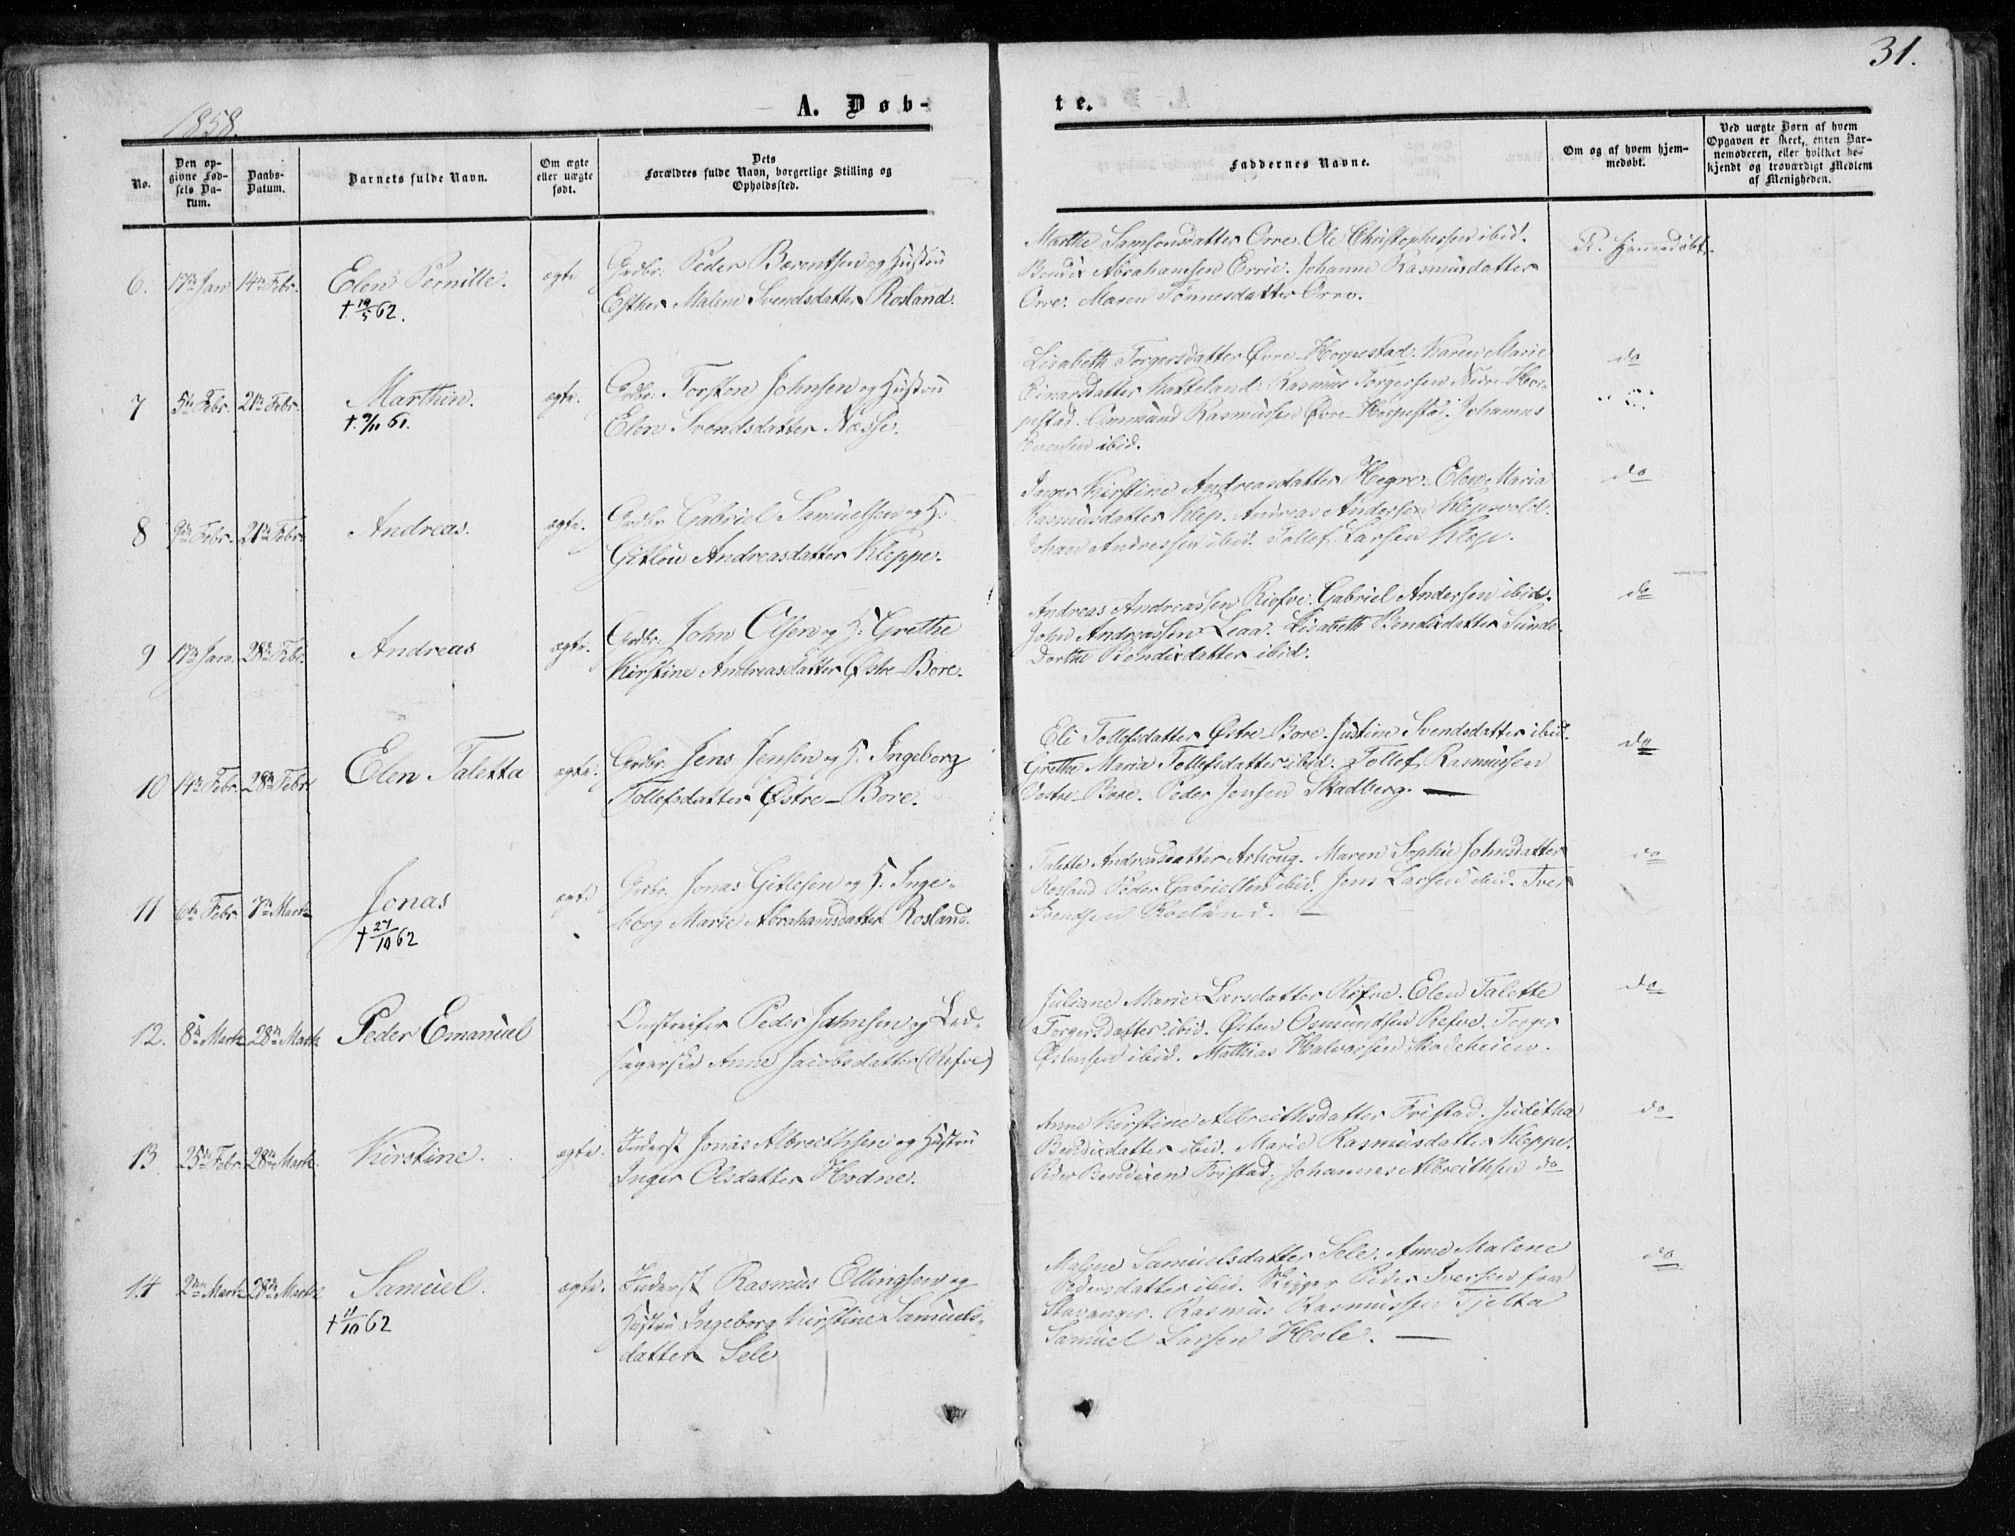 31.
1858.
A. Døb-
te.
No.
Den op-
givne Fød-
sels Da-
tum.
Daabs-
Datum.
Barnets fulde Navn.
Om ægte
eller uægte
født.
Dets
Forældres fulde Navn, borgerlige Stilling og
Opholdssted.
Faddernes Navne.
Om og af hvem hjem-
medøbt.
Ved uægte Børn af hvem
Opgaven er skeet, enten Bar-
nemoderen, eller hvilket be-
kjendt og troværdigt Medlem
af Menigheden.
6. 17de Jan 14de Febr. Elen Pernille. ægte
† 19/5 62.
Grdbr. Peder Bærentsen og Hustru
Esther Malene Svendsdatter Rosland.
Marthe Samsonsdatter Orre. Ole Christophersen ibid.
Bendix Abrahamsen Errie. Johanne Rasmusdatter
Orre. Maren Tønnesdatter Orre.
Hjemmedøbt.
7 5te Febr. 21de Febr. Marthin. ægte.
† 9/11 61.
Grdbr. Torsten Johnsen og Hustru
Elen Svendsdatter Næsse.
Lisabeth Torgersdatter Øvre-Horpestad. Karen Marie
Einarsdatter Katteland. Rasmus Torgersen Nedre Hor-
pestad. Ommund Rasmussen Øvre-Horpestad. Johannes
Evensen ibid.
do
8 9de Febr. 21de Febr. Andreas. ægte.
Grdbr. Gabriel Samuelsen og H.
Gitlou Andreasdatter Kleppe.
Inger Kirstine Andreasdatter Hegre. Elen Maria
Rasmusdatter Klep. Andreas Andersen Klepvold.
Johan Andressen ibid. Tollef Larsen Klep.
do
9 17de Jan. 28de Febr. Andreas ægte.
Grdbr. John Olsen og H. Grethe
Kirstine Andreasdatter Østre-Bore.
Andreas Andreassen Riefve. Gabriel Andersen ibid.
John Andreassen Leaa. Lisabeth Bendixdatter Sunde.
Dorthe Bendixdatter ibid.
do
10 14de Febr. 28de Febr. Elen Taletta ægte.
Grdbr. Jens Jensen og H. Ingeborg
Tollefsdatter Østre-Bore.
Eli Tollefsdatter Østre-Bore. Justine Svendsdatter ibid.
Grethe Maria Tollefsdatter ibid. Tollef Rasmussen
Vestre-Bore. Peder Jensen Skadberg. —
do
11 6te Febr. 7de Marts Jonas ægte
† 27/10 62
Grdbr. Jonas Gitlesen og H. Inge-
borg Marie Abrahamsdatter Rosland.
Talette Andreasdatter Arhoug. Maren Sophie Johnsdatter
Rosland Peder Gabrielsen ibid. Jens Larsen ibid. Iver
Svendsen Rosland. —
do
12. 8de Marts 28de Marts Peder Emanuel
Omstreifer Peder Johnsen og Led-
sagerske Anne Jacobsdatter (Refve)
Juliane Marie Larsdatter Refve. Elen Talette
Torgersdatter ibid. Østen Osmundsen Refve. Torger
Østensen ibid. Mathias Halvorsen Skadeheien.
do
13 25de Febr. 28de Marts. Kirstine. ægte.
Inderst Jonas Albreithsen og Hustru
Inger Olsdatter Hodne.
Anne Kirstine Albreithsdatter Fristad. Juditha
Bendixdatter ibid. Marie Rasmusdatter Kleppe.
Peder Bendixen Fristad. Johannes Albreithsen do
do
14 2den Marts 28de Marts Samuel. ægte.
† 11/10 62
Inderst Rasmus Ellingsen og
Hustru Ingeborg Kirstine Samuels-
datter Sele
Malene Samuelsdatter Sele. Anne Malene
Pedersdatter ibid. Peder Iversen fra
Stavanger. Rasmus Rasmussen Tjelta
Samuel Larsen Hole. —
do